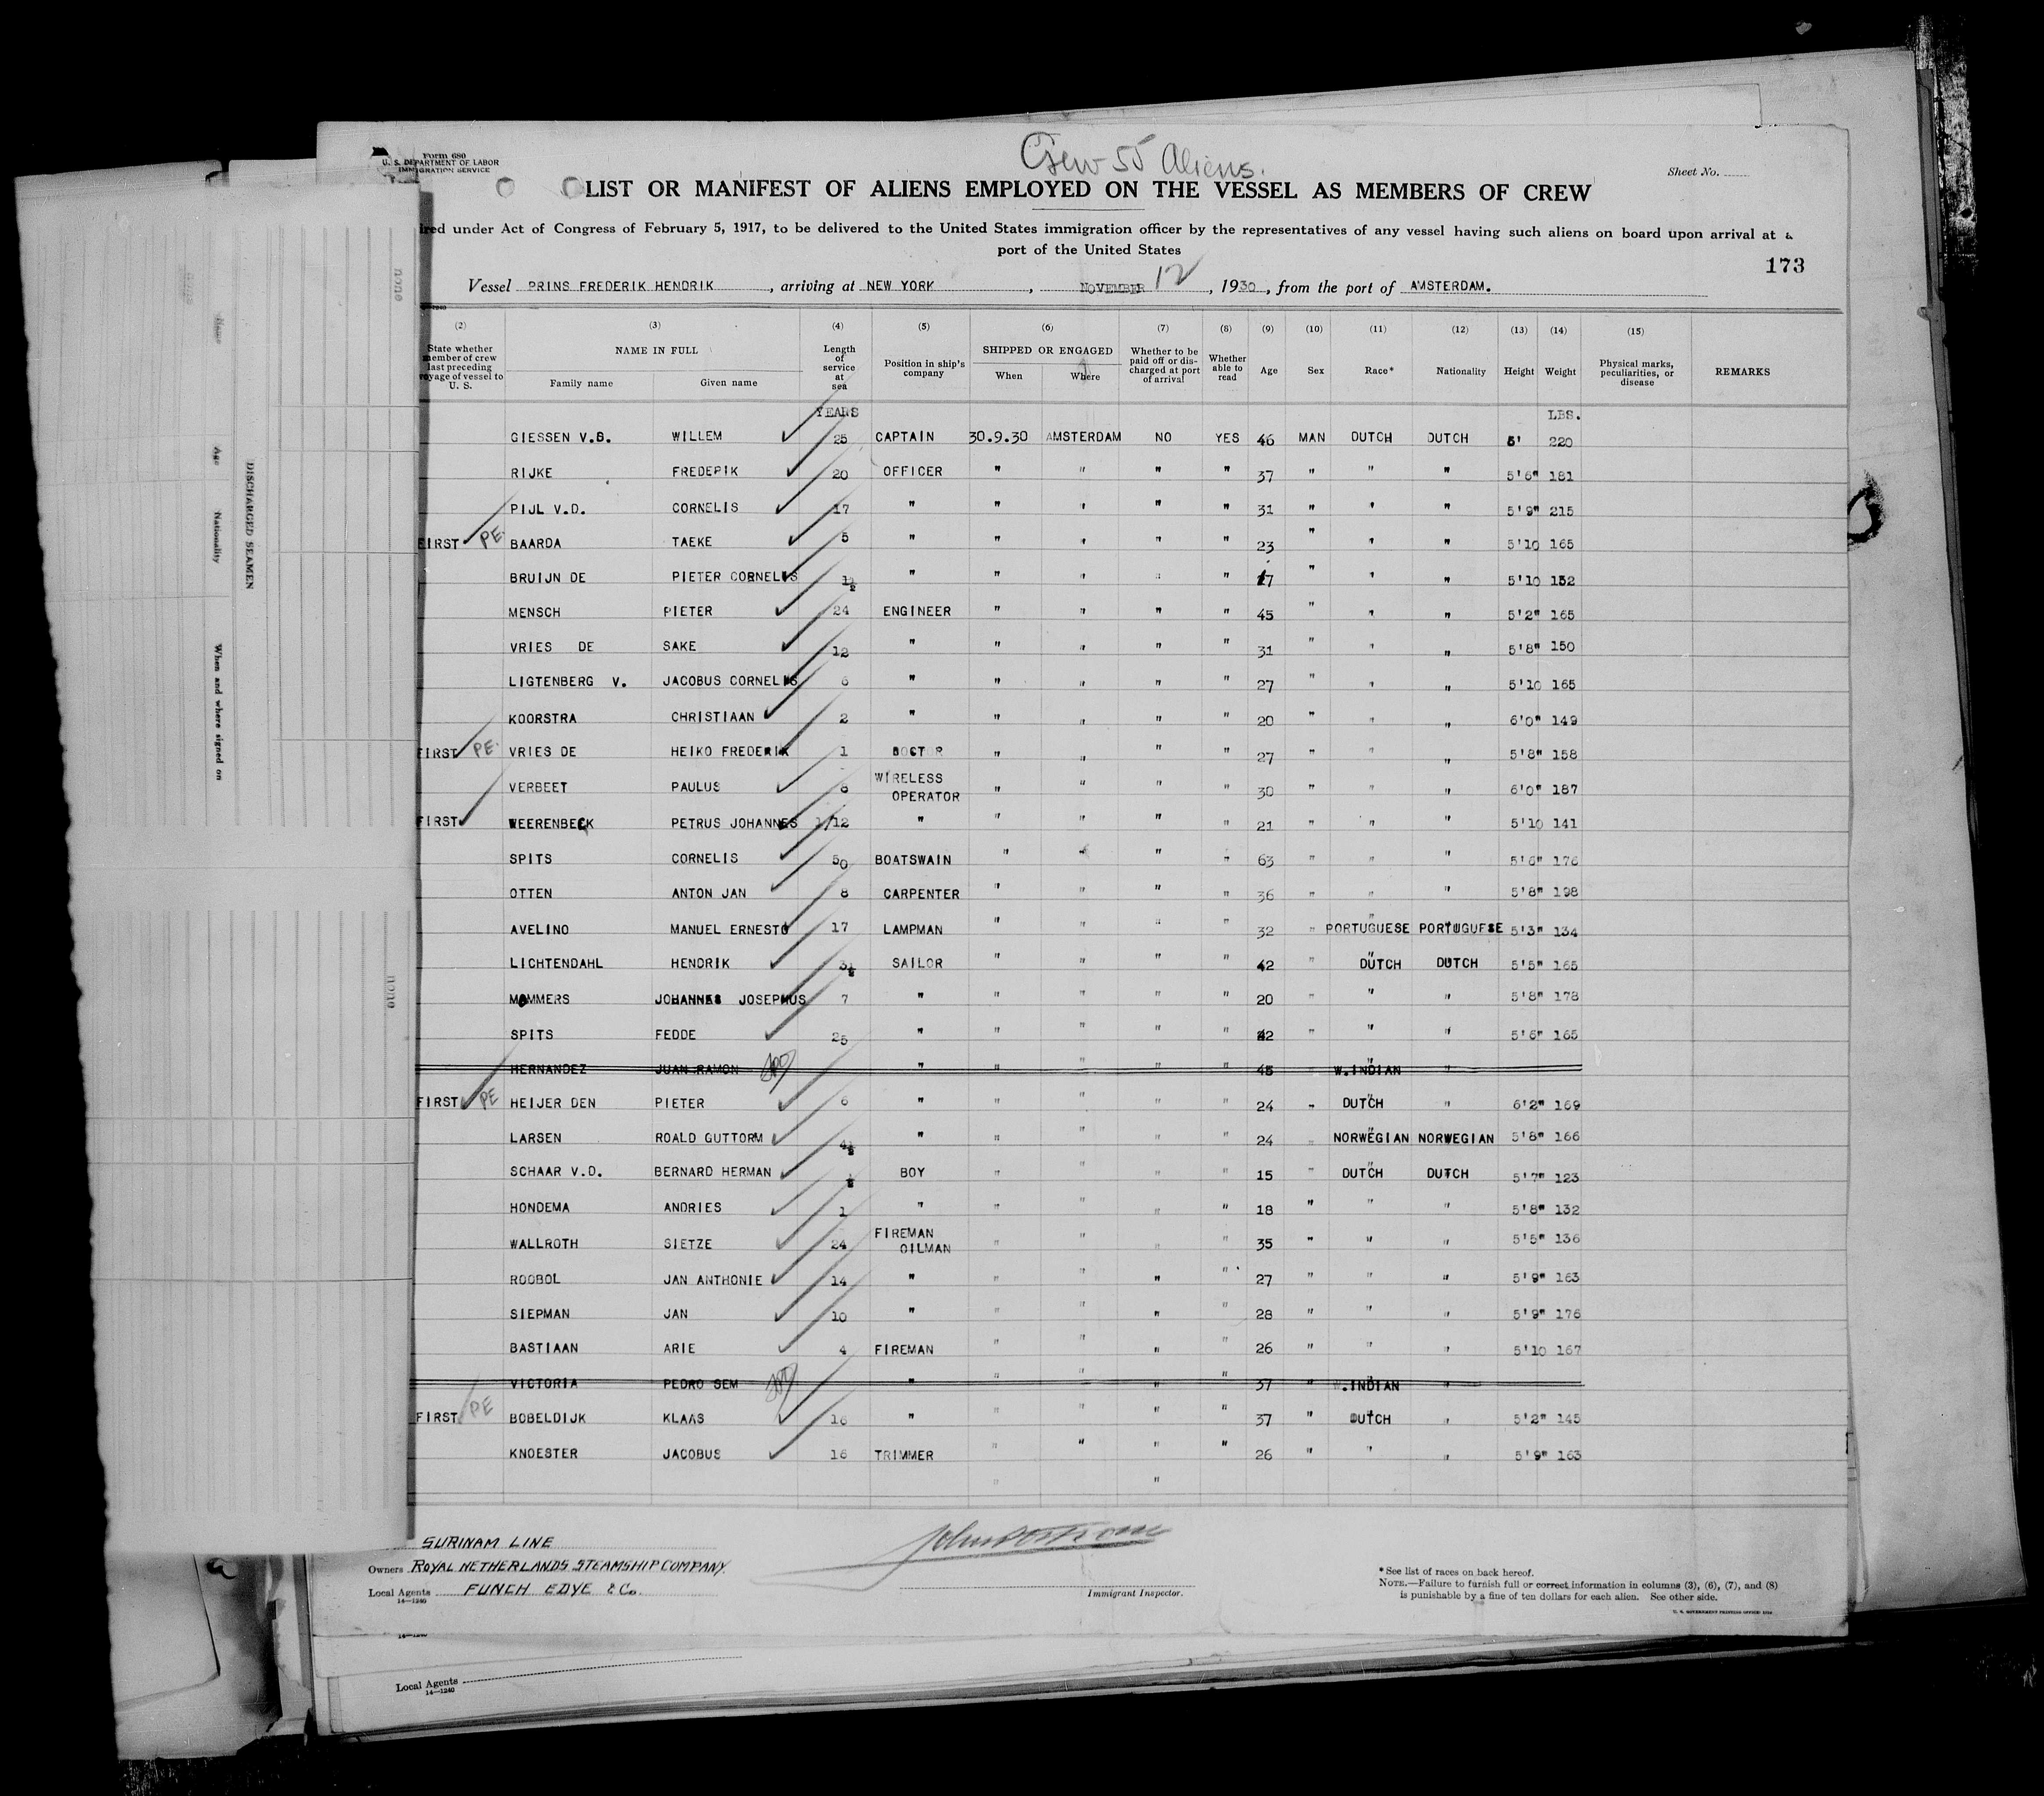 Crew 55 Aliens.
Form 680
U. S. DEPARTMENT OF LABOR
IMMIGRATION SERVICE
Sheet No.
LIST OR MANIFEST OF ALIENS EMPLOYED ON THE VESSEL AS MEMBERS OF CREW
under Act of Congress of February 5, 1917, to be delivered to the United States immigration officer by the representatives of any vessel having such aliens on board upon arrival at a
port of the United States
173
Vessel PRINS FREDERIK HENDRIK, arriving at NEW YORK, NOVEMBER 12, 1930, from the port of AMSTERDAM.
(2) (3) (4) (5) (6) (7) (8) (9) (10) (11) (12) (13) (14) (15)
State whether member of crew last preceding voyage of vessel to U. S. NAME IN FULL Family name Given name Length of service at sea Position in ship's company SHIPPED OR ENGAGED When Where Whether to be paid off or discharged at port of arrival Whether able to read Age Sex Race* Nationality Height Weight Physical marks, peculiarities, or disease REMARKS
YEARS LBS.
GIESSEN V.D. WILLEM 25 CAPTAIN 30.9.30 AMSTERDAM NO YES 46 MAN DUTCH DUTCH 5' 220
RIJKE FREDERIK 20 OFFICER " " " " 37 " " " 5'6" 181
PIJL V.D. CORNELIS 17 " " " " " 31 " " " 5'9" 215
FIRST PE BAARDA TAEKE 5 " " " " " 23 " " " 5'10 165
BRUIJN DE PIETER CORNELIS 1½ " " " " " 17 " " " 5'10 132
MENSCH PIETER 24 ENGINEER " " " " 45 " " " 5'2" 165
VRIES DE SAKE 12 " " " " " 31 " " " 5'8" 150
LIGTENBERG V. JACOBUS CORNELIS 6 " " " " " 27 " " " 5'10 165
KOORSTRA CHRISTIAAN 2 " " " " " 20 " " " 6'0" 149
FIRST PE VRIES DE HEIKO FREDERIK 1 DOCTOR " " " " 27 " " " 5'8" 158
VERBEET PAULUS 8 WIRELESS OPERATOR " " " " 30 " " " 6'0" 187
FIRST WEERENBECK PETRUS JOHANNES 1/12 " " " " " 21 " " " 5'10 141
SPITS CORNELIS 50 BOATSWAIN " " " " 63 " " " 5'6" 176
OTTEN ANTON JAN 8 CARPENTER " " " " 36 " " " 5'8" 198
AVELINO MANUEL ERNESTO 17 LAMPMAN " " " " 32 " PORTUGUESE PORTUGUESE 5'3" 134
LICHTENDAHL HENDRIK 3½ SAILOR " " " " 42 " DUTCH DUTCH 5'5" 165
MOMMERS JOHANNES JOSEPHUS 7 " " " " " 20 " " " 5'8" 178
SPITS FEDDE 25 " " " " " 42 " " " 5'6" 165
HERNANDEZ JUAN RAMON " " " " " 45 W.INDIAN "
FIRST PE HEIJER DEN PIETER 6 " " " " " 24 " DUTCH " 6'2" 169
LARSEN ROALD GUTTORM 4½ " " " " " 24 " NORWEGIAN NORWEGIAN 5'8" 166
SCHAAR V.D. BERNARD HERMAN ½ BOY " " " " 15 " DUTCH DUTCH 5'7" 123
HONDEMA ANDRIES 1 " " " " " 18 " " " 5'8" 132
WALLROTH SIETZE 24 FIREMAN OILMAN " " " " 35 " " " 5'5" 136
ROOBOL JAN ANTHONIE 14 " " " " " 27 " " " 5'9" 163
SIEPMAN JAN 10 " " " " " 28 " " " 5'9" 176
BASTIAAN ARIE 4 FIREMAN " " " " 26 " " " 5'10 167
VICTORIA PEDRO SEM " " " " " 37 " W.INDIAN "
FIRST PE BOBELDIJK KLAAS 16 " " " " " 37 " DUTCH " 5'2" 145
KNOESTER JACOBUS 16 TRIMMER " " " " 26 " " " 5'9" 163
" "
SURINAM LINE
Owners ROYAL NETHERLANDS STEAMSHIP COMPANY.
Local Agents FUNCH EDYE & Co.
14—1240
Immigrant Inspector.
* See list of races on back hereof.
NOTE.—Failure to furnish full or correct information in columns (3), (6), (7), and (8)
is punishable by a fine of ten dollars for each alien. See other side.
U. S. GOVERNMENT PRINTING OFFICE
Local Agents
14—1240
DISCHARGED SEAMEN
Name Age Nationality When and where signed on
none
none